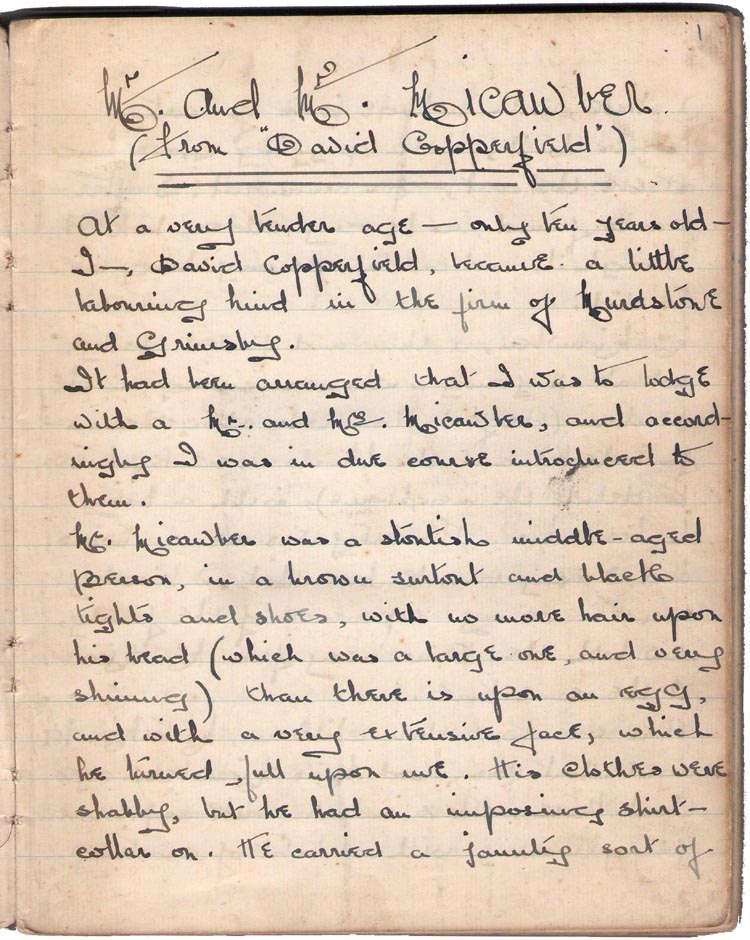 1
Mr. and Mrs. Micawber.
(From "David Copperfield")
At a very tender age — only ten years old —
I —, David Copperfield, became a little
labouring hind in the firm of Murdstone
and Grinsby.
It had been arranged that I was to lodge
with a Mr. and Mrs. Micawber, and accord-
ingly I was in due course introduced to
them.
Mr. Micawber was a stoutish middle-aged
person, in a brown surtout and black
tights and shoes, with no more hair upon
his head (which was a large one, and very
shining) than there is upon an egg,
and with a very extensive face, which
he turned full upon me. His clothes were
shabby, but he had an imposing shirt-
collar on. He carried a jaunty sort of